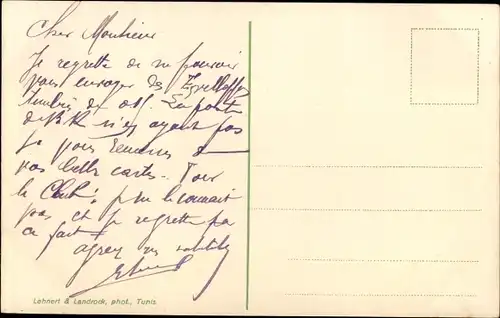 Cher Monsieur
Je regrette de ne pouvoir
vous envoyer des
timbres de off. La poste
de n'en ayant pas
je vous remercie de
vos belles cartes. Pour
le Club: je ne le connait
pas et je regrette par
ce fait
agréez mes
Lehnert & Landrock, phot., Tunis.